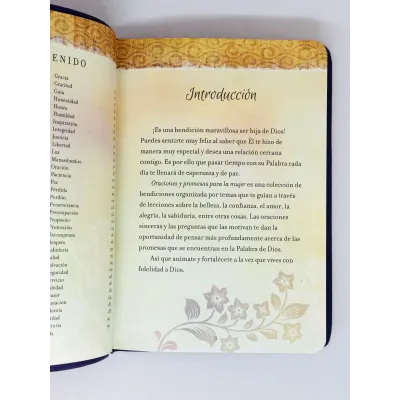 ENIDO
Gracia
Gratitud
Guía
Honestidad
Honra
Humildad
Inspiración
Integridad
Justicia
Libertad
Luz
Mansedumbre
Oración
Paciencia
Paz
Pérdida
Perdón
Perseverancia
Preocupación
Propósito
Protección
Introducción
¡Es una bendición maravillosa ser hija de Dios!
Puedes sentirte muy feliz al saber que Él te hizo de
manera muy especial y desea una relación cercana
contigo. Es por ello que pasar tiempo con su Palabra cada
día te llenará de esperanza y de paz.
Oraciones y promesas para la mujer es una colección de
bendiciones organizada por temas que te guían a través
de lecciones sobre la belleza, la confianza, el amor, la
alegría, la sabiduría, entre otras cosas. Las oraciones
sinceras y las preguntas que las motivan te dan la
oportunidad de pensar más profundamente acerca de las
promesas que se encuentran en la Palabra de Dios.
Así que anímate y fortalécete a la vez que vives con
fidelidad a Dios.